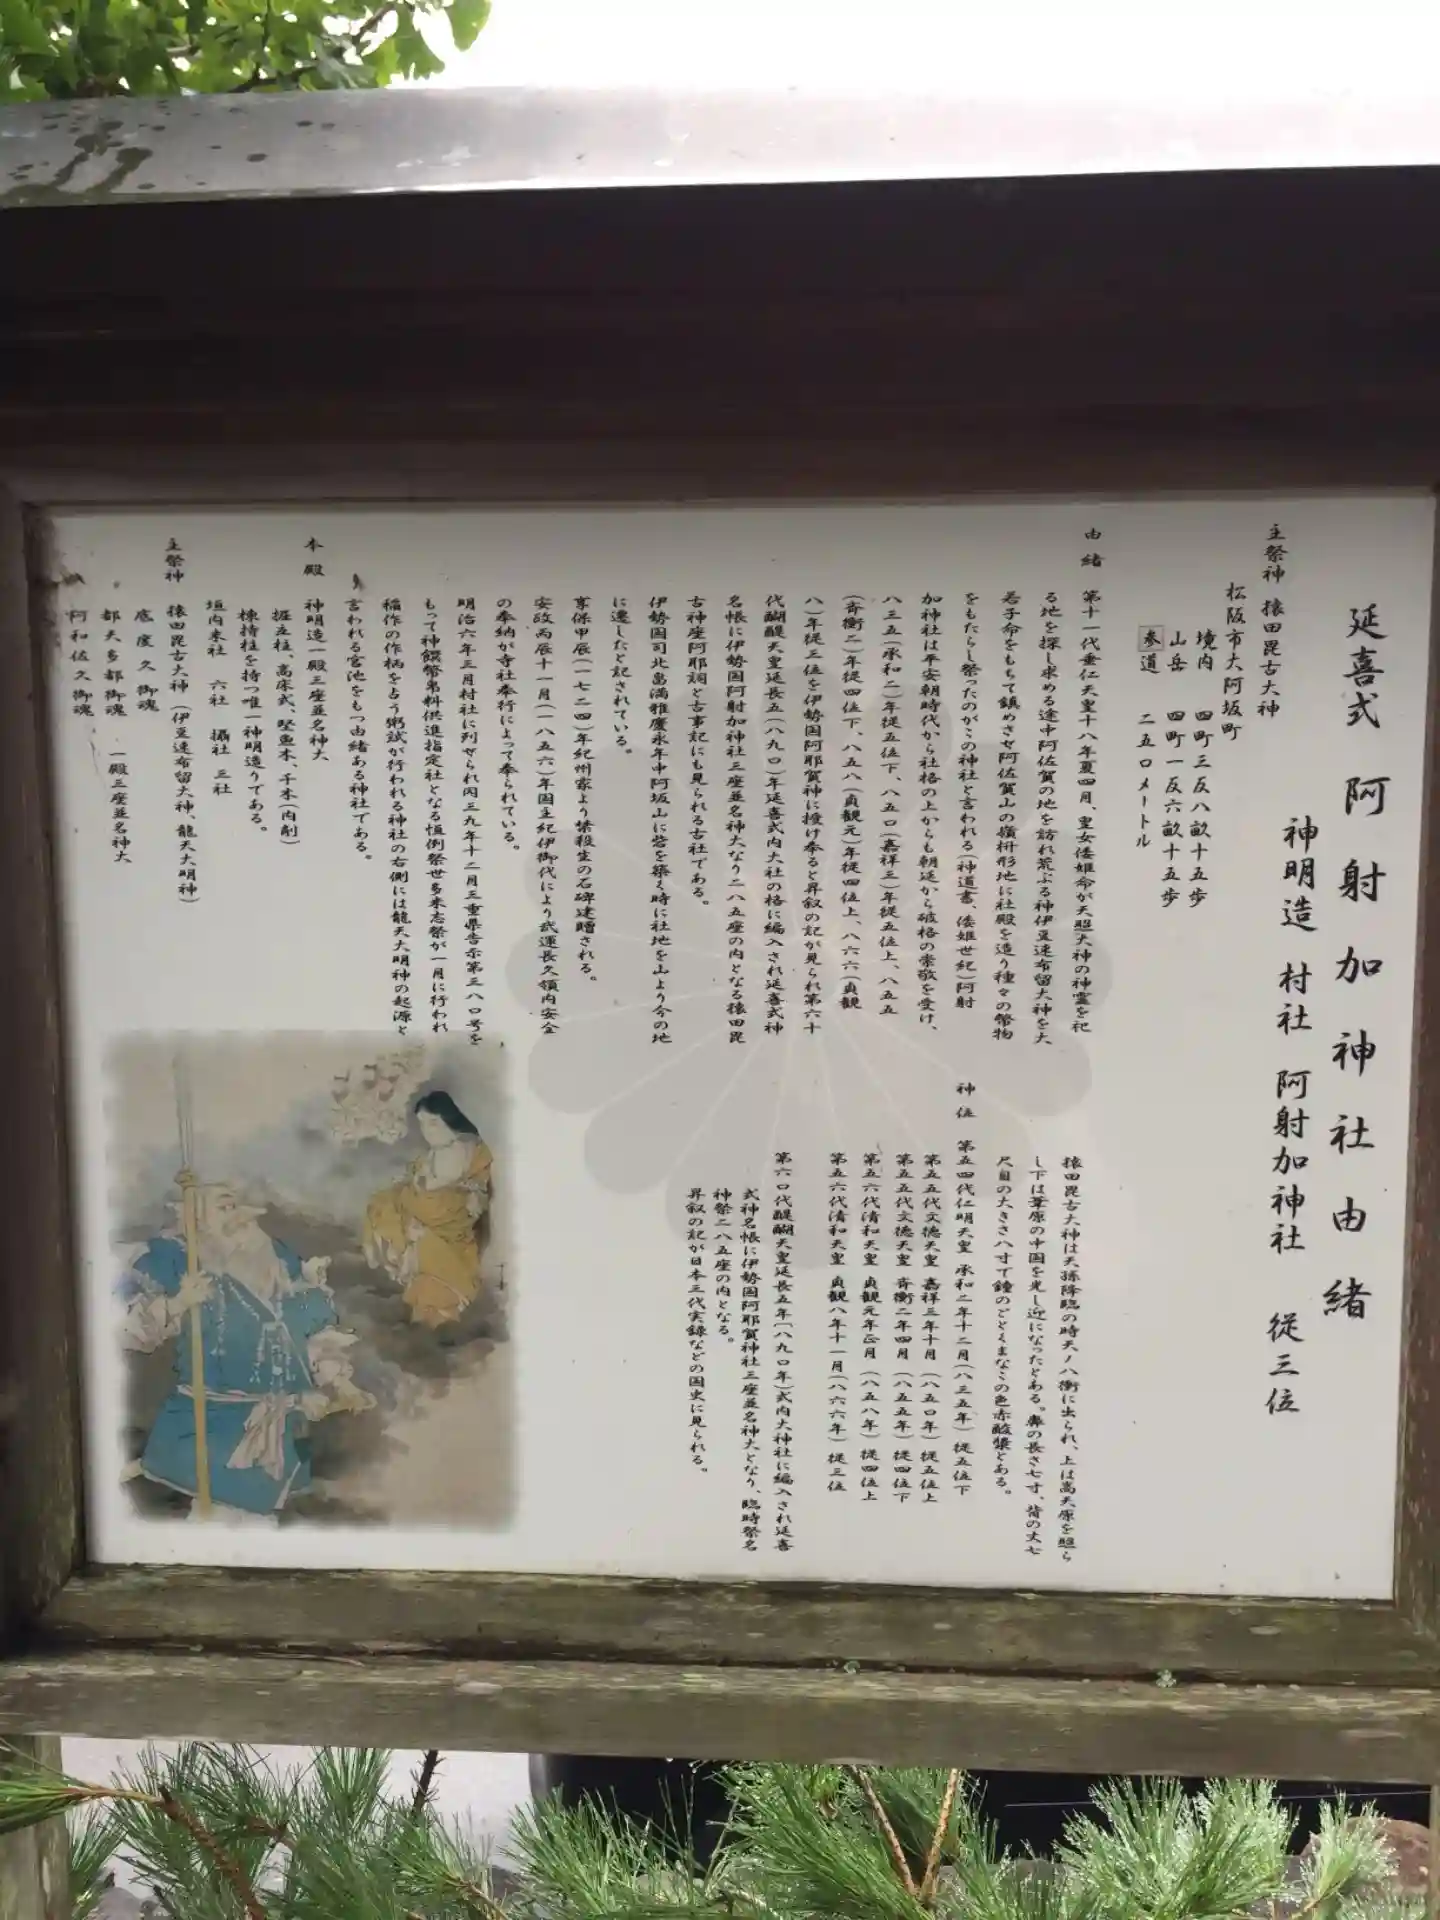 延喜式 阿射加神社由緒
神明造 村社 阿射加神社 従三位
主祭神 猿田毘古大神
松阪市大阿坂町
境内 四町三反八畝十五歩
山岳 四町一反六畝十五歩
参道 二五〇メートル
由緒 第十一代垂仁天皇十八年夏四月、皇女倭姫命が天照大神の神霊を祀
る地を探し求める途中阿佐賀の地を訪れ荒ぶる神伊豆速布留大神を大
若子命をもちて鎮めさせ阿佐賀山の嶺枡形地に社殿を造り種々の幣物
をもたらし祭ったのがこの神社と言われる(神道書、倭姫世紀)阿射
加神社は平安朝時代から社格の上からも朝廷から破格の崇敬を受け、
八三五(承和二)年従五位下、八五〇(嘉祥三)年従五位上、八五五
(斉衡二)年従四位下、八五八(貞観元)年従四位上、八六六(貞観
八)年従三位を伊勢国阿耶賀神に授け奉ると昇叙の記が見られ第六十
代醍醐天皇延長五(八九〇)年延喜式内大社の格に編入され延喜式神
名帳に伊勢国阿射加神社三座並名神大なり二八五座の内となる猿田毘
古神座阿耶訶と古事記にも見られる古社である。
伊勢国司北畠満雅慶永年中阿坂山に砦を築く時に社地を山より今の地
に遷したと記されている。
享保甲辰(一七二四)年紀州家より禁殺生の石碑建贈される。
安政丙辰十一月(一八五六)年国主紀伊御代により武運長久領内安全
の奉納が寺社奉行によって奉られている。
明治六年三月村社に列せられ同三九年十二月三重県告示第三八〇号を
もって神饌幣帛料供進指定社となる恒例祭世多来志祭が一月に行われ
稲作の作柄を占う粥試が行われる神社の右側には龍天大明神の起源と
言われる宮池をもつ由緒ある神社である。
本殿 神明造一殿三座並名神大
掘立柱、高床式、堅魚木、千木(内削)
棟持柱を持つ唯一神明造りである。
垣内末社 六社 攝社 三社
主祭神 猿田毘古大神 (伊豆速布留大神、龍天大明神)
底度久御魂
都夫多都御魂 一殿三座並名神大
阿和佐久御魂
猿田毘古大神は天孫降臨の時天ノ八衢に出られ、上は高天原を照ら
し下は葦原の中国を光し近になったとある。鼻の長さ七寸、背の丈七
尺目の大きさ八寸で鐘のごとくまなこの色赤酸漿とある。
神位 第五四代仁明天皇 承和二年十二月(八三五年) 従五位下
第五五代文徳天皇 嘉祥三年十月 (八五〇年) 従五位上
第五五代文徳天皇 斉衡二年四月 (八五五年) 従四位下
第五六代清和天皇 貞観元年正月 (八五八年) 従四位上
第五六代清和天皇 貞観八年十一月(八六六年) 従三位
第六〇代醍醐天皇延長五年(八九〇年)式内大神社に編入され延喜
式神名帳に伊勢国阿耶賀神社三座並名神大となり、臨時祭名
神祭二八五座の内となる。
昇叙の記が日本三代実録などの国史に見られる。